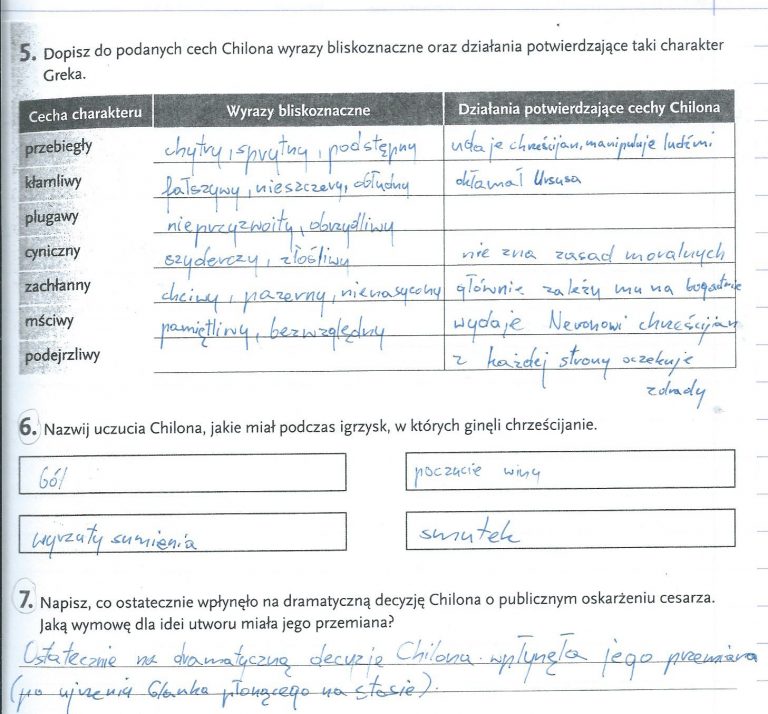 5. Dopisz do podanych cech Chilona wyrazy bliskoznaczne oraz działania potwierdzające taki charakter
Greka.
Cecha charakteru Wyrazy bliskoznaczne Działania potwierdzające cechy Chilona
przebiegły chytry, sprytny, podstępny udaje chrześcijan, manipuluje ludźmi
kłamliwy fałszywy, nieszczery, obłudny okłamał Ursusa
plugawy nieprzyzwoity, obrzydliwy
cyniczny szyderczy, złośliwy nie zna zasad moralnych
zachłanny chciwy, pazerny, nienasycony głównie zależy mu na bogactwie
mściwy pamiętliwy, bezwzględny wydaje Neronowi chrześcijan
podejrzliwy z każdej strony oczekuje
zdrady
6. Nazwij uczucia Chilona, jakie miał podczas igrzysk, w których ginęli chrześcijanie.
ból poczucie winy
wyrzuty sumienia smutek
7. Napisz, co ostatecznie wpłynęło na dramatyczną decyzję Chilona o publicznym oskarżeniu cesarza.
Jaką wymowę dla idei utworu miała jego przemiana?
Ostatecznie na dramatyczną decyzję Chilona wpłynęła jego przemiana
(po ujrzeniu Glauka płonącego na stosie).